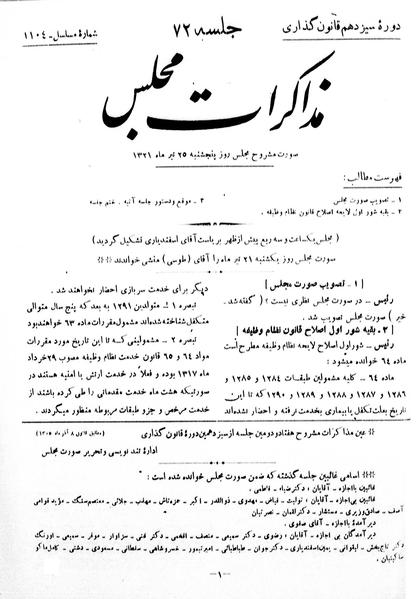 دورهٔ سیزدهم قانون گذاری
جلسه ۷۲
شمارهٔ مسلسل - ۱۱۰۴
مذاکرات مجلس
صورت مشروح مجلس روز پنجشنبه ۲۵ تیر ماه ۱۳۲۱
فهرست مطالب :
۱ - تصویب صورت مجلس
۲ - بقیه شور اول لایحه اصلاح قانون نظام وظیفه .
۳ - موقع و دستور جلسه آتیه . ختم جلسه
( مجلس یکساعت و سه ربع پیش از ظهر بریاست آقای اسفندیاری تشکیل گردید )
صورت مجلس روز یکشنبه ۲۱ تیر ماه را آقای ( طوسی ) منشی خواندند
[ ۱ - تصویب صورت مجلس ]
رئیس - در صورت مجلس نظری نیست ؟ ( گفته شد .
خیر ) صورت مجلس تصویب شد .
[ ۲ - بقیه شور اول اصلاح قانون نظام وظیفه ]
رئیس - شور اول اصلاح لایحه نظام وظیفه مطرح است
ماده ٦٤ خوانده میشود :
ماده ٦٤ - کلیه مشمولین طبقات ۱۲۸٤ و ۱۲۸٥ و
۱۲۸٦ و ۱۲۸۷ و ۱۲۸۸ و ۱۲۸۹ و ۱۲۹۰ که تا این
تاریخ بعلت تکفل یا بیماری بخدمت نرفته و احضار نشده‌اند
دیگر برای خدمت سربازی احضار نخواهند شد .
تبصره ۱ - متولدین ۱۲۹۱ به بعد که پنج سال متوالی
متکفل شناخته شده‌اند مشمول مقررات ماده ٦۳ خواهند بود
تبصره ۲ - مشمولینی که تا این تاریخ مورد مقررات
مواد ٦٤ و ٦٥ قانون خدمت نظام وظیفه مصوب ۲۹ خرداد
ماه ۱۳۱۷ بوده و فعلا در خدمت ارتش یا امنیه هستند در
صورتیکه هشت ماه خدمت مقدماتی را طی کرده باشند از
خدمت مرخص و جزو طبقات مربوطه منظور میگردند .
عین مذاکرات مشروح هفتاد و دومین جلسه از سیزدهمین دورهٔ قانون گذاری
( مطابق قانون ۸ آذر ماه ۱۳۰٥ )
ادارهٔ تند نویسی و تحریر صورت مجلس
اسامی غائبین جلسه گذشته که ضمن صورت مجلس خوانده شده است :
غائبین با اجازه - آقایان : دکتر ضیاء - فاطمی .
آصف - صادق وزیری - مستشار - دکتر لقمان - نصرتیان
دیر آمدهٔ با اجازه - آقای صفوی .
- ۱ -